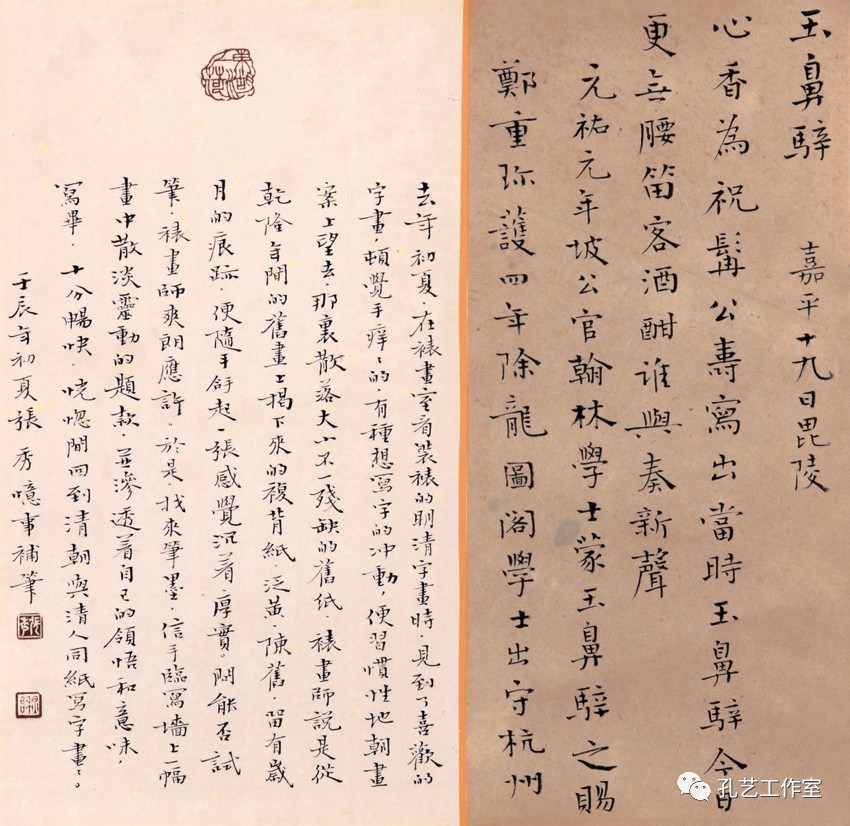 玉鼻騂 嘉平十九日毘陵
心香為祝髯公壽寫出當時玉鼻騂今日
更無腰笛客酒酣谁與奏新聲
元祐元年坡公官翰林學士蒙玉鼻騂之賜
鄭重珎護四年除龍圖阁學士出守杭州
去年初夏，在裱畫室看裝裱的明清字畫時，見到了喜歡的
字畫，頓覺手痒〻的，有種想寫字的冲動，便習慣性地朝畫
案上望去，那裏散落大小不一殘缺的舊紙，裱畫師說是從
乾隆年間的舊畫上揭下來的複背紙，泛黃，陳舊，留有歲
月的痕跡，便隨手拿起一張感覺沉着，厚實。問能否試
筆，裱畫師爽朗應許。於是找來筆墨，信手臨寫墻上一幅
畫中散淡靈動的題款，並滲透着自己的領悟和意味，
寫畢，十分暢快，恍惚間回到清朝與清人同紙寫字畫〻。
壬辰年初夏張秀憶事補筆
孔艺工作室